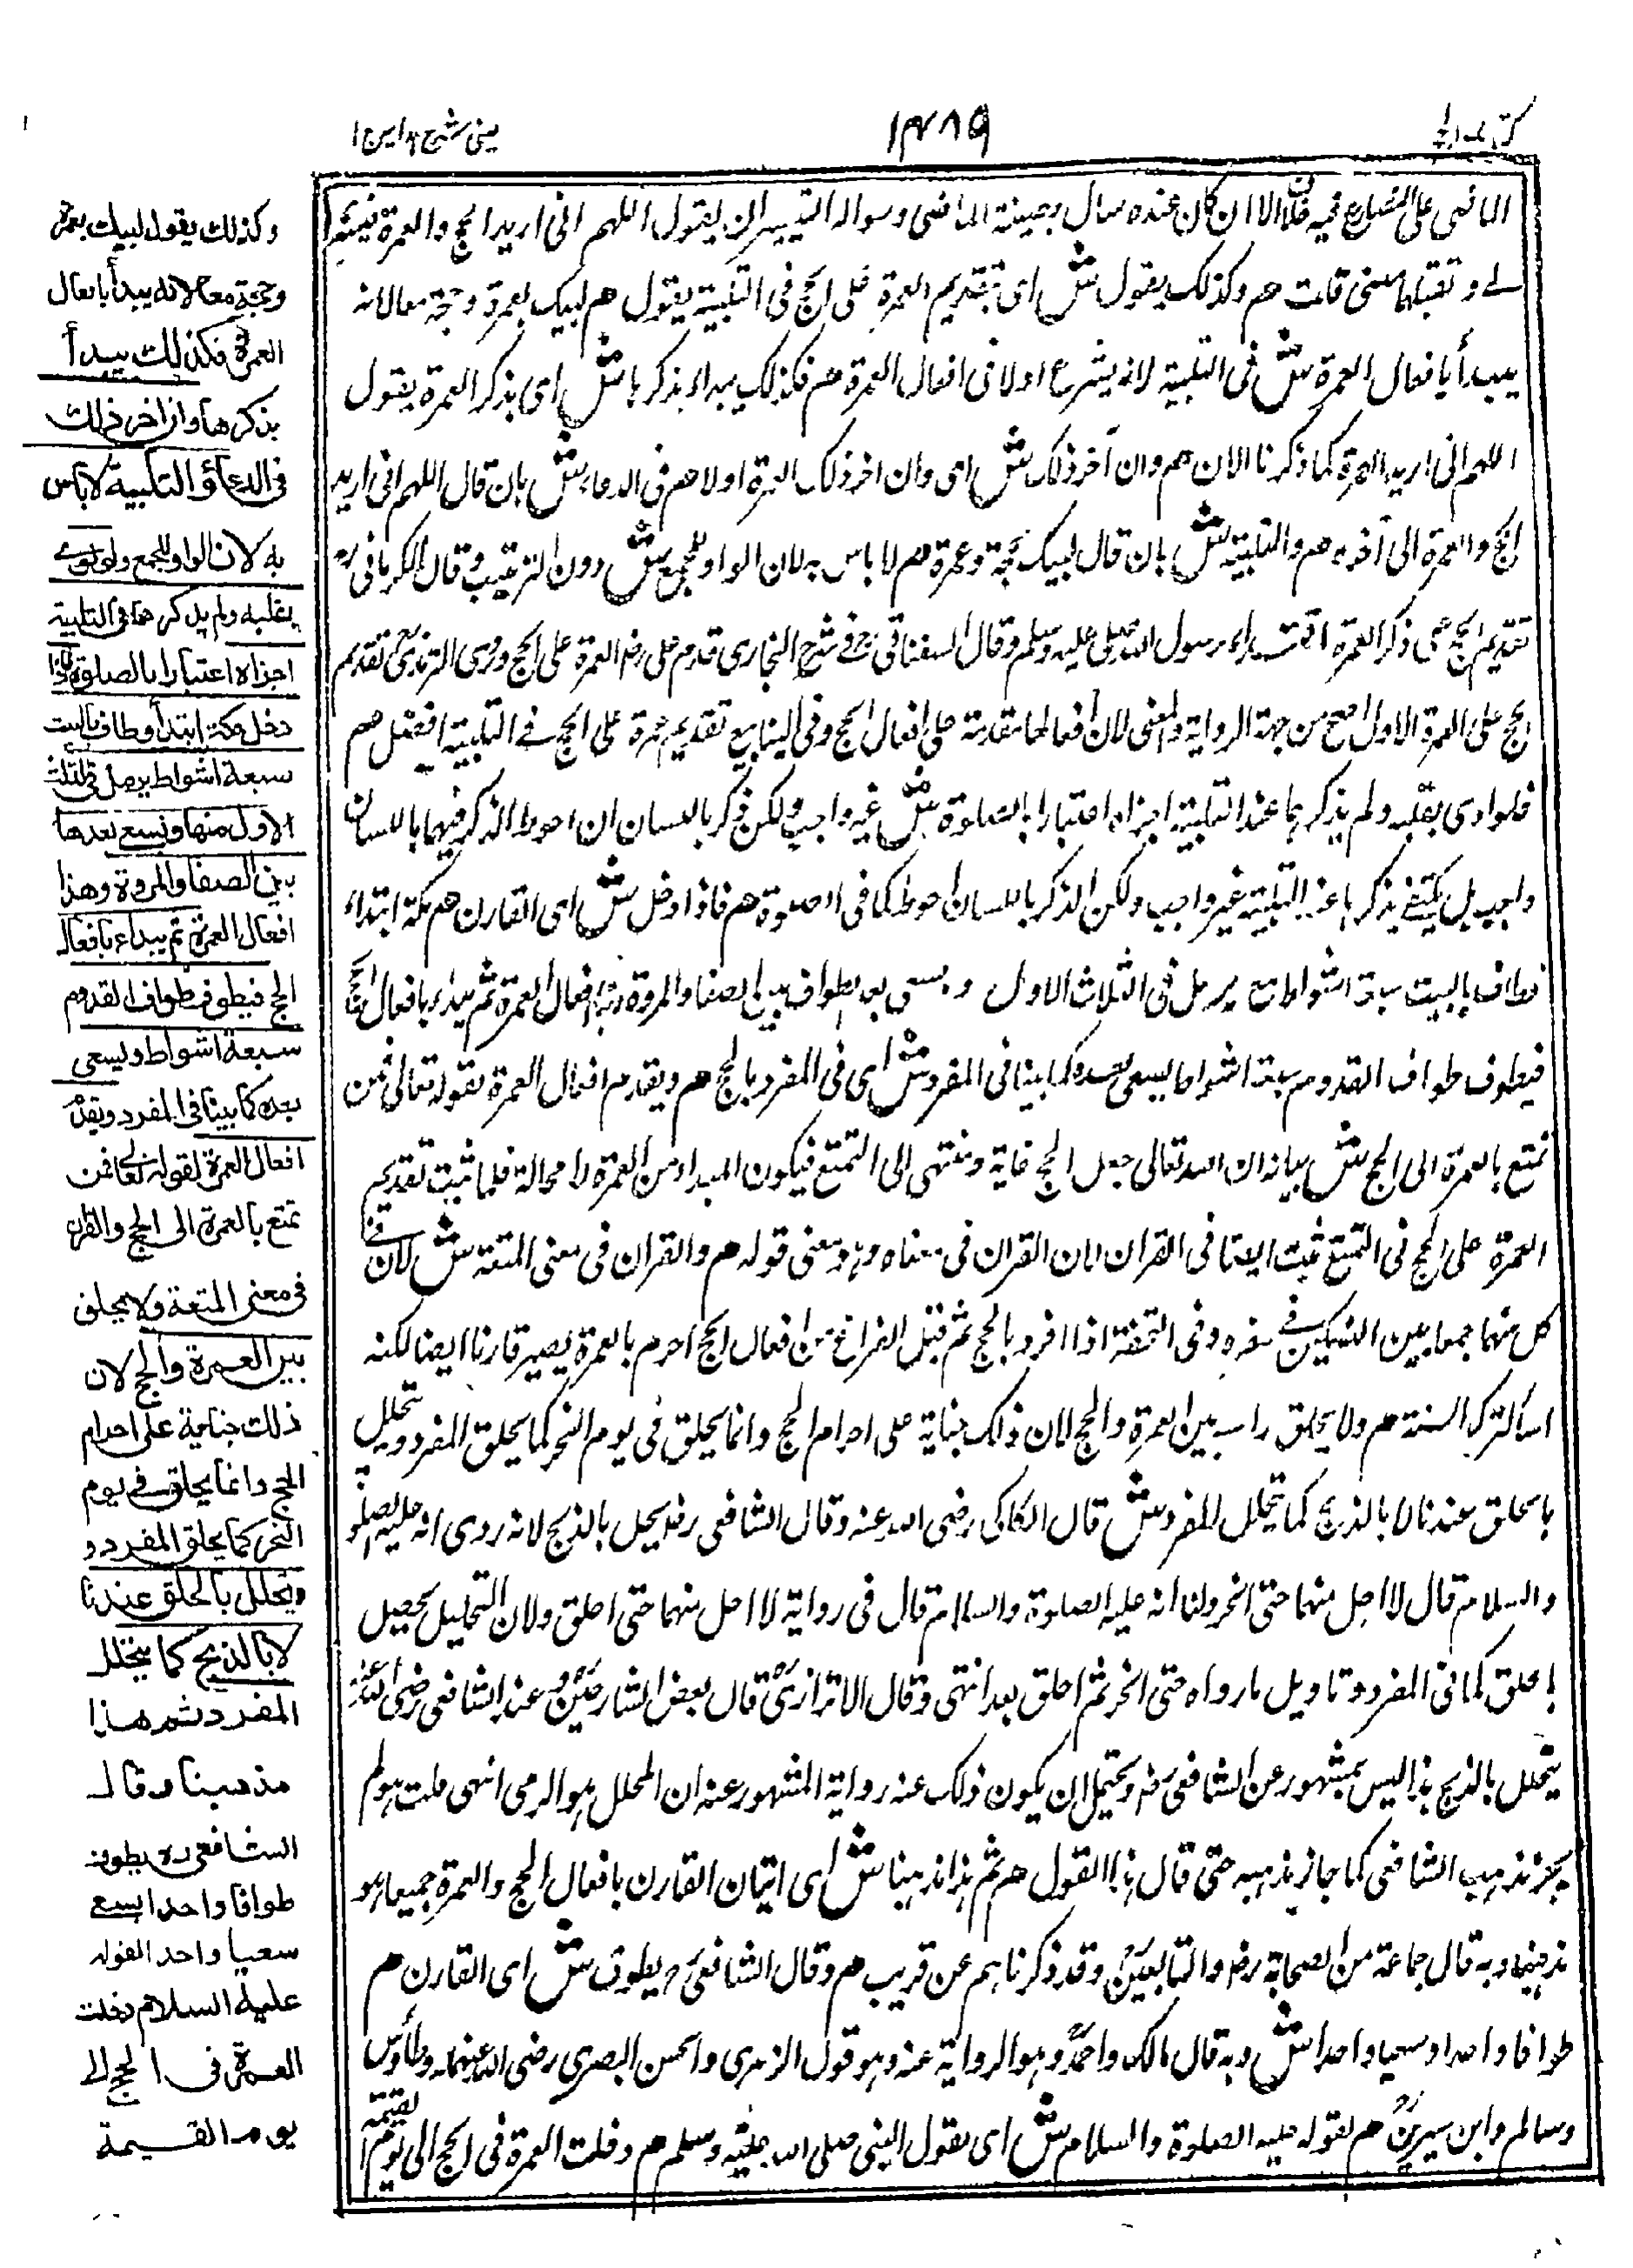 كتاب الحج
١٣٨٩
عينى شرح هداية ج ١
الماضى على المضارع فيه فلما الا ان كان عنده سال بصيغة الماضى وسواله التيسير ان يقول اللهم انى اريد الحج والعمرة فيسرهما
لى وتقبلهما منى قلت هم وكذلك يقول ش اى بتقديم العمرة على الحج فى التلبية يقول هم لبيك بعمرة وحجة معا لانه
يبدأ بافعال العمرة ش فى التلبية لانه يشرع اولا فى افعال العمرة هم فكذلك يبداء بذكرها ش اى بذكر العمرة يقول
اللهم انى اريد العمرة كما ذكرنا الان هم وان آخر ذلك ش اى وان اخر ذلك العمرة اولا هم فى الدعاء ش بان قال اللهم انى اريد
الحج والعمرة الى آخره هم والتلبية ش بان قال لبيك بحجة وعمرة هم لا باس به لان الواو للجمع ش دون الترتيب وقال الكرمانى رح
تقديم الحج على ذكر العمرة اقتداء برسول الله صلى عليه وسلم وقال السغناقى رح فى شرح البخارى قدم على رض العمرة على الحج وروى الترمذى تقديم
الحج على العمرة الاول اصح من جهة الرواية والمعنى لان افعالها متقدمة على افعال الحج وفى الينابيع تقديم عمرة على الحج فى التلبية افضل هم
فلو نوى بقلبه ولم يذكرهما عند التلبية اجزاه اعتبارا بالصلوة ش غير واجب ولكن ذكر باللسان ان احوط الذكر فيهما باللسان
واجب بل يكتفى بذكرها عند التلبية غير واجب ولكن الذكر باللسان احوط كما فى الصلوة هم فاذا دخل ش اى القارن هم مكة ابتداء
فطاف بالبيت سبعة اشواط يرمل فى الثلاث الاول ويسعى بعد الطواف بين الصفا والمروة وهذا افعال العمرة ثم يبداء بافعال الحج
فيطوف طواف القدوم سبعة اشواط يسعى بعده كما بينا فى المفرد ش اى فى المفرد بالحج هم ويقدم افعال العمرة بقوله تعالى فمن
تمتع بالعمرة الى الحج ش بيانه ان الله تعالى جعل الحج غاية ومنتهى الى التمتع فيكون المبداء من العمرة لا محالة فلما ثبت تقديم
العمرة على الحج فى التمتع ثبت ايضا فى القران لان القران فى معناه وهو معنى قوله هم والقران فى معنى المتعة ش لان فى
كل منهما جمعا بين النسكين فى سفره وفى التحفة اذا افرد بالحج ثم قبل الفراغ من افعال الحج احرم بالعمرة يصير قارنا ايضا لكنه
اساء لترك السنة هم ولا يحلق راسه بين العمرة والحج لان ذلك جناية على احرام الحج وانما يحلق فى يوم النحر كما يحلق المفرد ويتحلل
بالحلق عندنا لا بالذبح كما تحلل المفرد ش قال الكاكى رضى الله عنه وقال الشافعى رض يحل بالذبح لانه روى انه عليه الصلوة
والسلام قال لا احل منهما حتى انحر ولنا انه عليه الصلوة والسلام قال فى رواية لا احل منهما حتى احلق ولان التحليل يحصل
بالحلق كما فى المفرد وتاويل ما رواه حتى انحر ثم احلق بعد انتهى وقال الاترازى قال بعض الشارحين وعند الشافعى رضى الله عنه
يتحلل بالذبح هذا ليس بمشهور عن الشافعى رض ويحتمل ان يكون ذلك عنه رواية المشهور عنه ان المحلل هو الرمى انتهى قلت هو لم
يجز مذهب الشافعى كما جاز مذهبه حتى قال هذا القول هم ثم هذا مذهبنا ش اى اتيان القارن بافعال الحج والعمرة جميعا هو
مذهبنا وبه قال جماعة من الصحابة رض والتابعين وقد ذكرناهم عن قريب هم وقال الشافعى رح يطوف ش اى القارن هم
طوافا واحدا وسعيا واحدا ش وبه قال مالك واحمد وهو الرواية عنه وهو قول الزهرى والحسن البصرى رضى الله عنهما وطاؤس
وسالم وابن سيرين هم لقوله عليه الصلوة والسلام ش اى بقول النبى صلى الله عليه وسلم هم دخلت العمرة فى الحج الى يوم القيمة
وكذلك يقول لبيك بعمرة
وحجة معا لانه يبدأ بافعال
العمرة فكذلك يبدأ
بذكرها وان اخر ذلك
فى الدعاء والتلبية لا باس
به لان الواو للجمع ولو نوى
بقلبه ولم يذكرهما فى التلبية
اجزاه اعتبارا بالصلوة فاذا
دخل مكة ابتدأ وطاف بالبيت
سبعة اشواط يرمل فى الثلث
الاول منها ويسعى بعدها
بين الصفا والمروة وهذا
افعال العمرة ثم يبداء بافعال
الحج فيطوف طواف القدوم
سبعة اشواط ويسعى
بعده كما بينا فى المفرد ويقدم
افعال العمرة لقوله تعالى فمن
تمتع بالعمرة الى الحج والقران
فى معنى المتعة ولا يحلق
بين العمرة والحج لان
ذلك جناية على احرام
الحج وانما يحلق فى يوم
النحر كما يحلق المفرد و
ويتحلل بالحلق عندنا
لا بالذبح كما يتحلل
المفرد ثم هذا
مذهبنا وقال
الشافعى ره يطوف
طوافا واحدا ويسعى
سعيا واحدا لقوله
عليه السلام دخلت
العمرة فى الحج الى
يوم القيمة